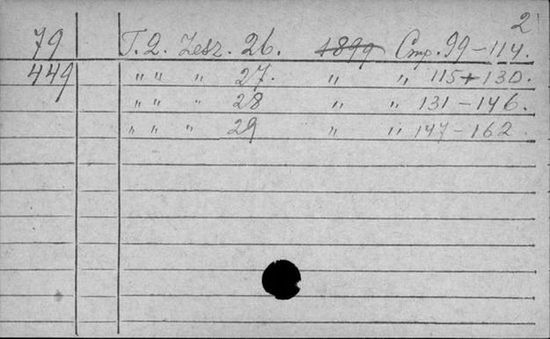 2
79 T. 2. Zesz. 26. 1899 Стр. 99-114.
449 " " " 27. " " 115-130.
" " " 28 " " 131-146.
" " " 29 " " 147-162.